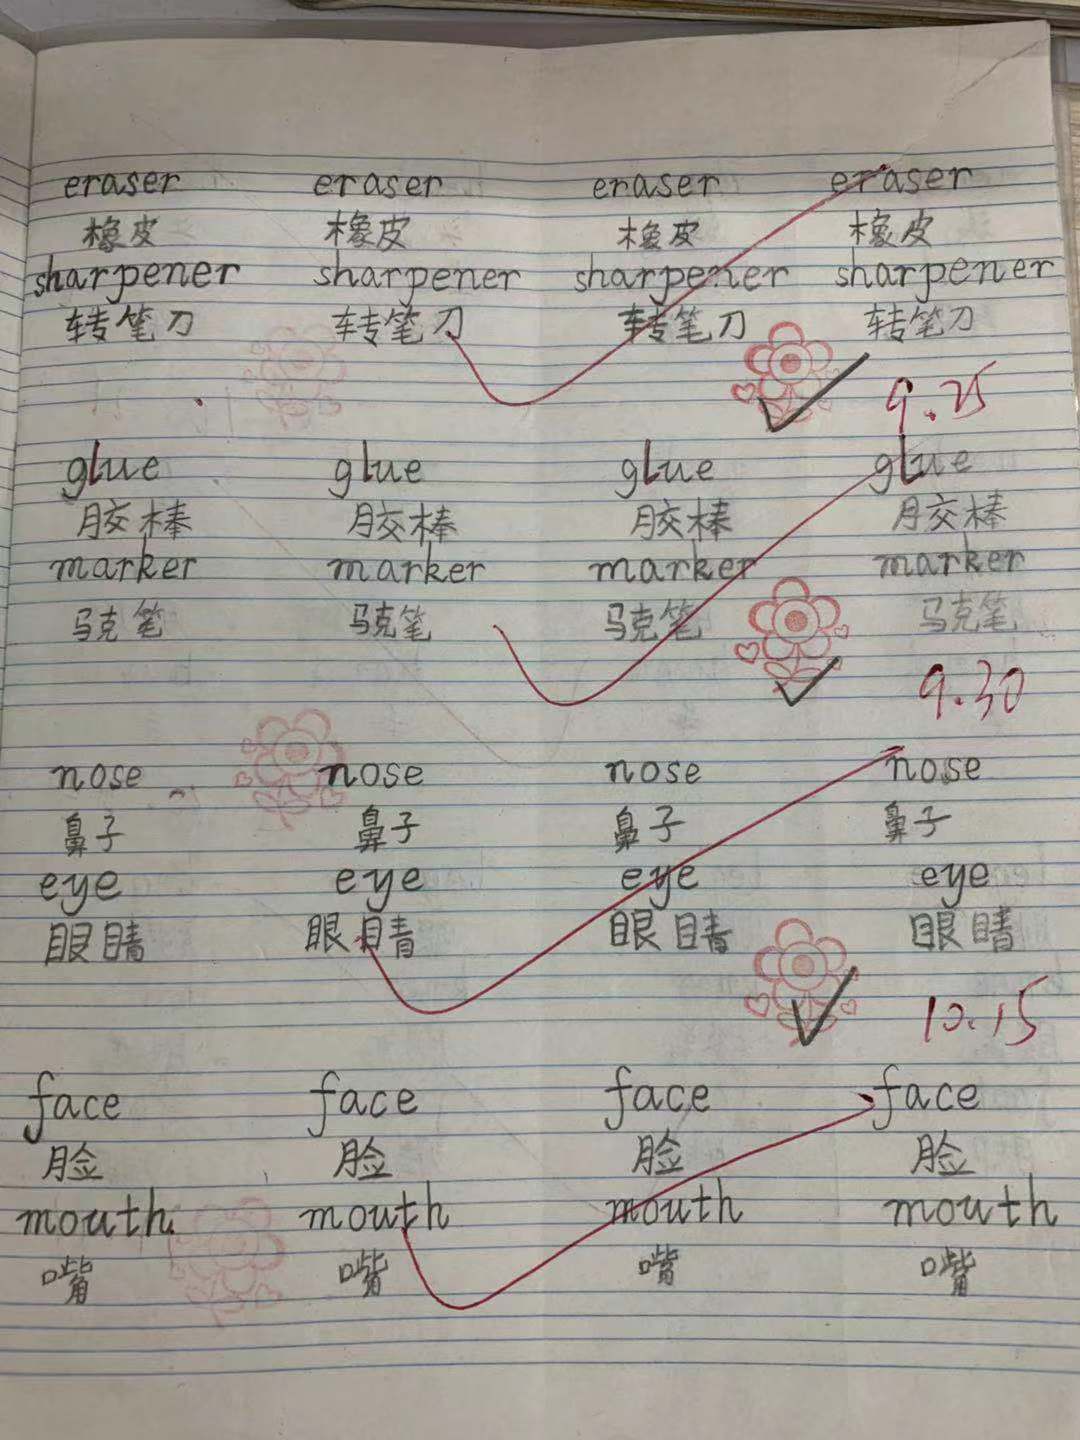 eraser eraser eraser eraser
橡皮 橡皮 橡皮 橡皮
sharpener sharpener sharpener sharpener
转笔刀 转笔刀 转笔刀 转笔刀
9.25
glue glue glue glue
胶棒 胶棒 胶棒 胶棒
marker marker marker marker
马克笔 马克笔 马克笔 马克笔
9.30
nose nose nose nose
鼻子 鼻子 鼻子 鼻子
eye eye eye eye
眼睛 眼睛 眼睛 眼睛
10.15
face face face face
脸 脸 脸 脸
mouth mouth mouth mouth
嘴 嘴 嘴 嘴